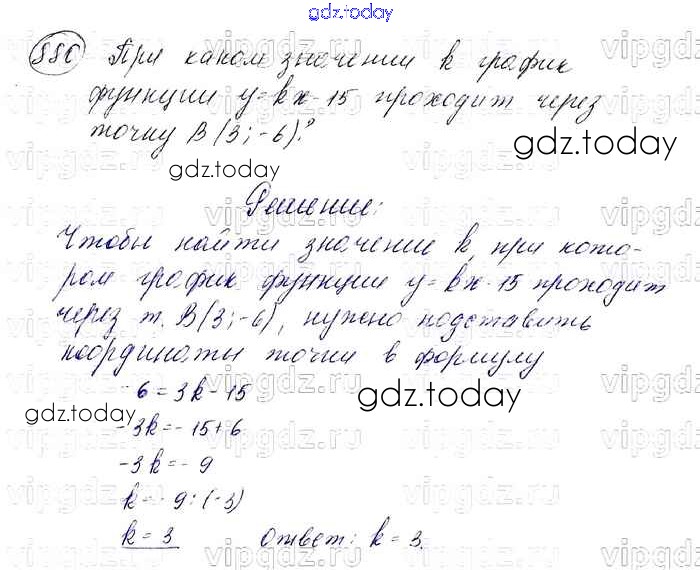 gdz.today
880 При каком значении k график
функции y=kx-15 проходит через
точку B(3;-6)?
gdz.today
gdz.today
Решение:
Чтобы найти значение k, при кото-
ром график функции y=kx-15 проходит
через т. B(3;-6), нужно подставить
координаты точки в формулу
-6=3k-15
gdz.today
gdz.today
-3k=-15+6
-3k=-9
k=-9:(-3)
k=3 Ответ: k=3.